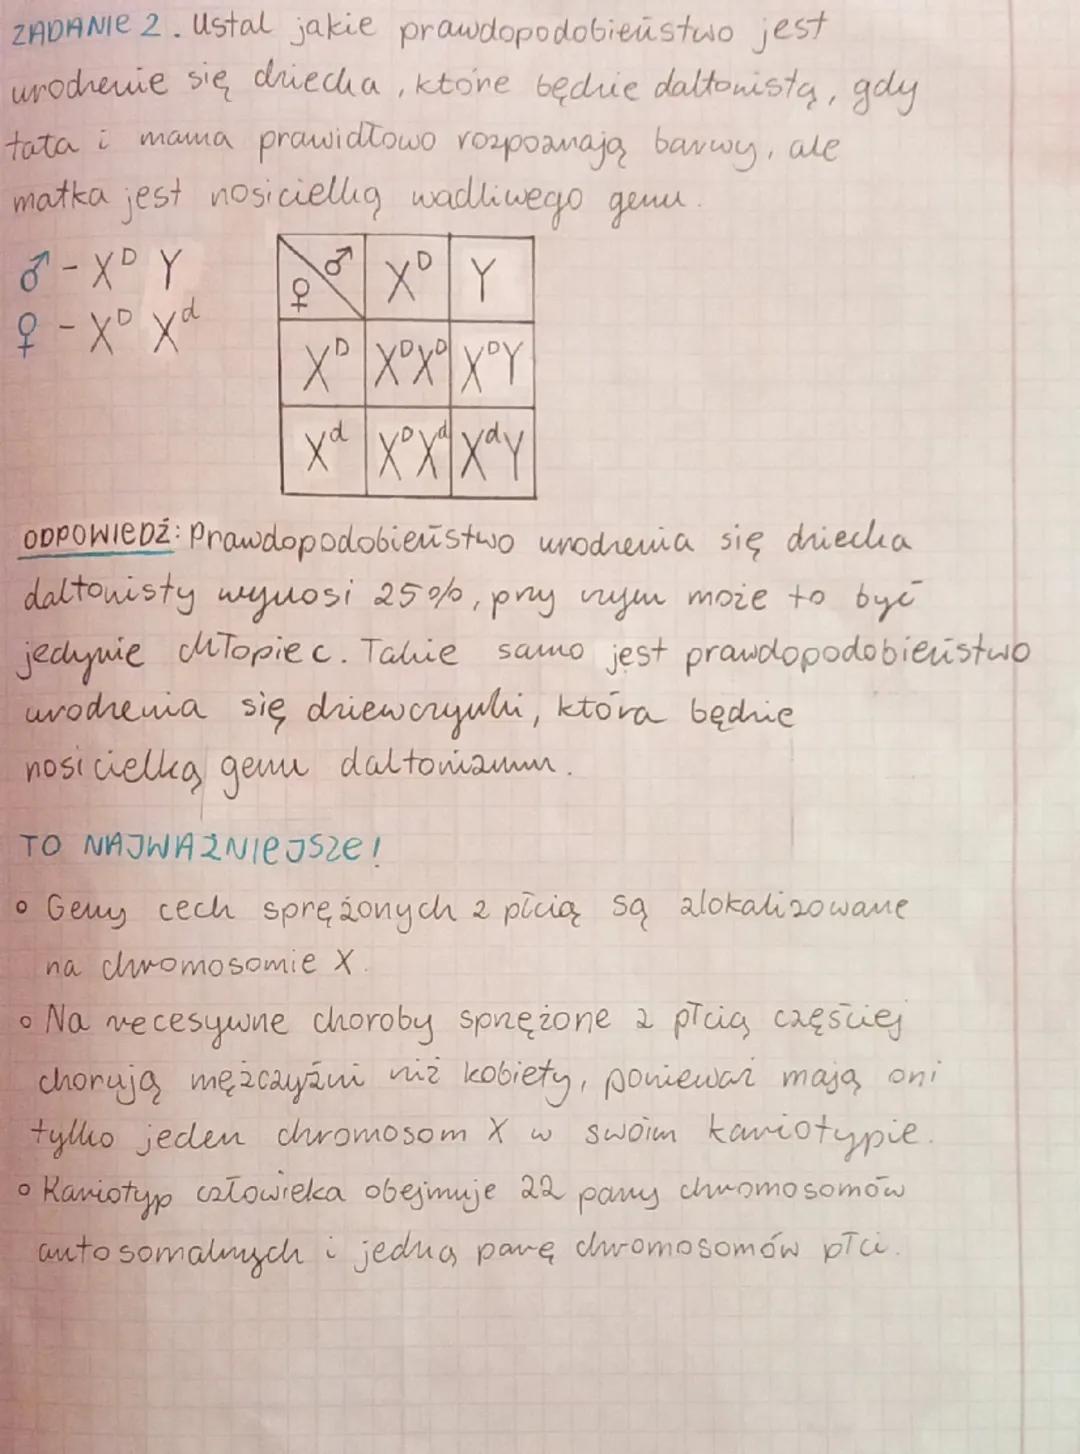 ZADANIE 2. Ustal jakie prawdopodobieństwo jest
urodzenie się dziecka, które będzie daltonistą, gdy
tata i mama prawidłowo rozpoznają barwy, ale
matka jest nosicielką wadliwego genu.
♂ - Xᴰ Y
♀ - Xᴰ Xᵈ
♀ ♂ Xᴰ Y
Xᴰ XᴰXᴰ XᴰY
Xᵈ XᴰXᵈ XᵈY
ODPOWIEDŹ: Prawdopodobieństwo urodzenia się dziecka
daltonisty wynosi 25%, przy czym może to być
jedynie chłopiec. Takie samo jest prawdopodobieństwo
urodzenia się dziewczynki, która będzie
nosicielką genu daltonizmu.
TO NAJWAŻNIEJSZE!
Geny cech sprężonych z płcią są zlokalizowane
na chromosomie X.
Na recesywne choroby sprzężone z płcią częściej
chorują mężczyźni niż kobiety, ponieważ mają oni
tylko jeden chromosom X w swoim kariotypie.
Kariotyp człowieka obejmuje 22 pary chromosomów
autosomalnych i jedną parę chromosomów płci.